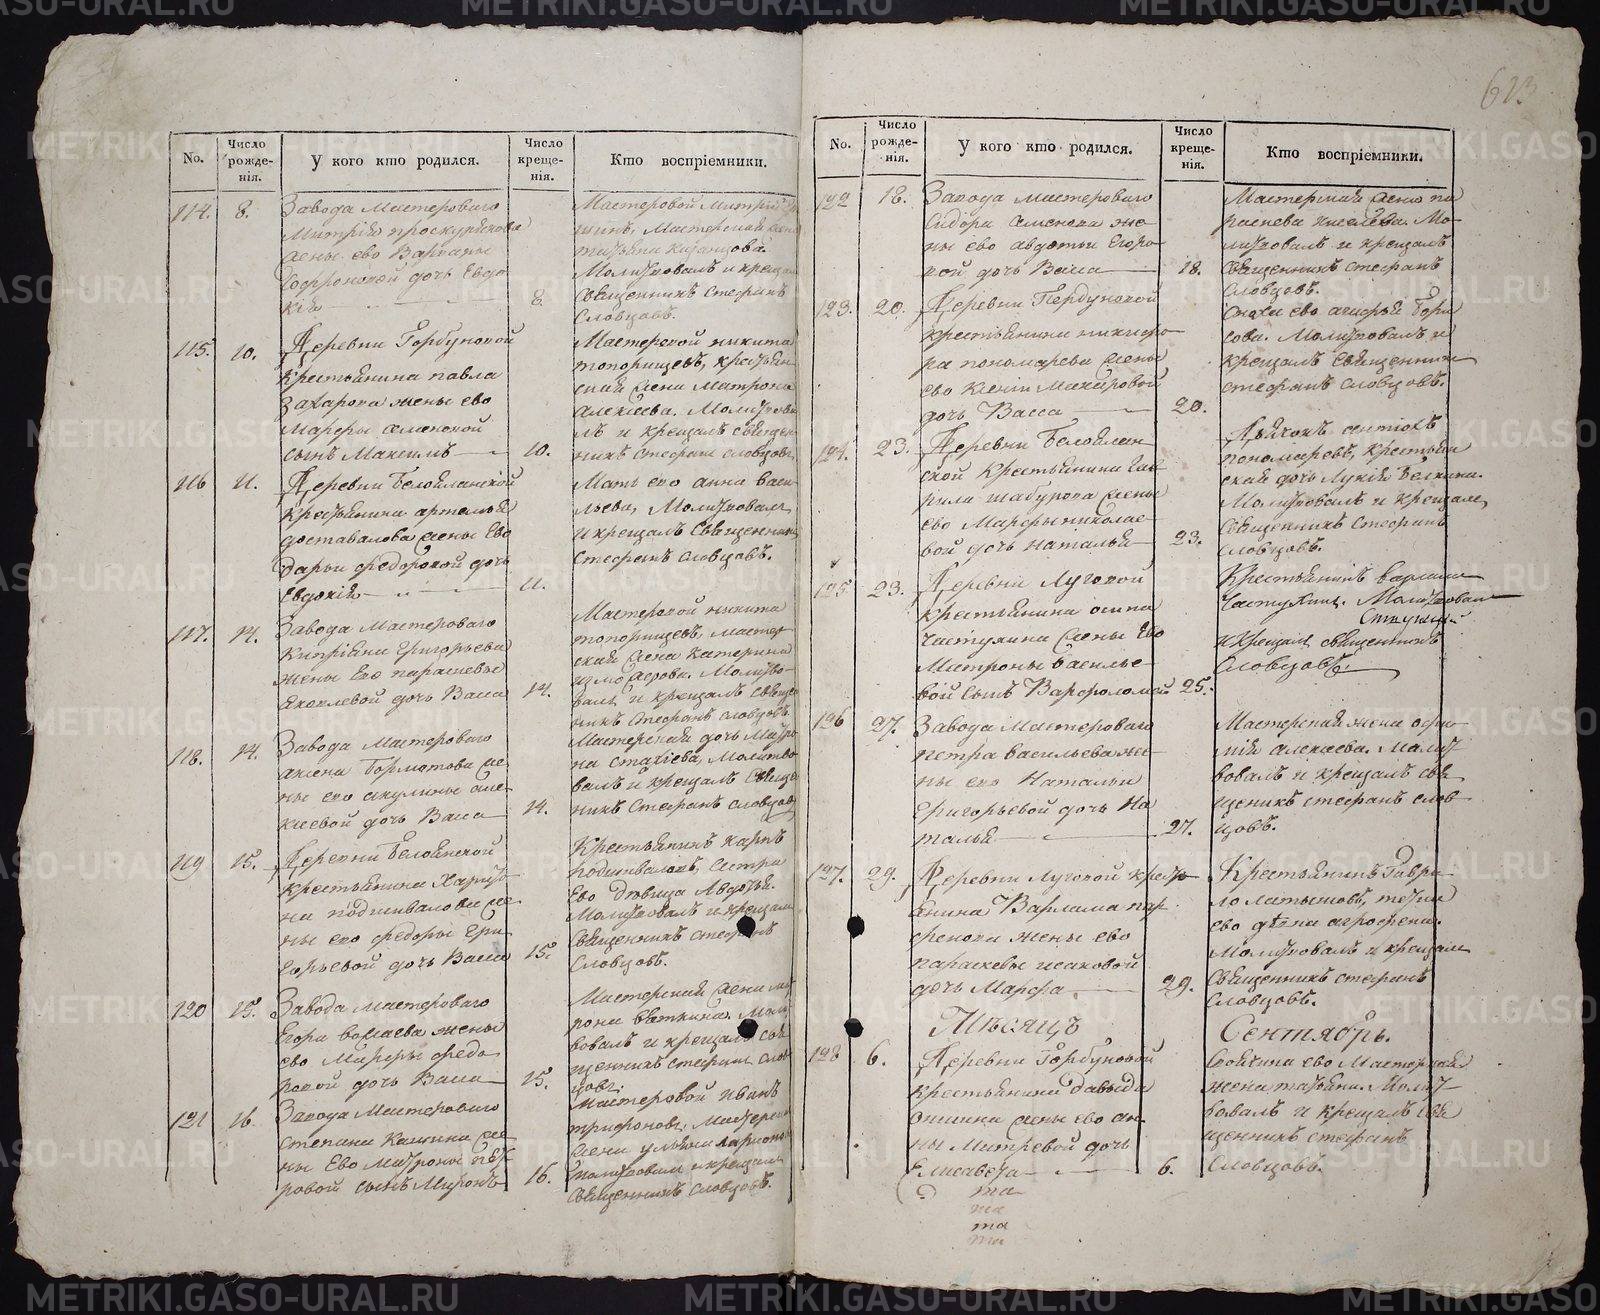 613
No.
Число рожде- нія.
У кого кто родился.
Число креще- нія.
Кто воспріемники.
114. 8.
Завода Мастероваго
Митрія проскурякова
жены ево Варвары
дочь Евдо
кія 8.
Мастеровой Митрій
Молитвовалъ и крещал
священникъ стефанъ
Словцовъ.
115. 10.
Деревни Горбуновой
крестьянина павла
захарова жены ево
Марфы семеновой
сынъ Максимъ 10.
Мастеровой никита
топорищевъ, крестьян
ская жена Матрона
алексеева. Молитвова
лъ и крещалъ священ
никъ Стефанъ словцовъ
116 11.
Деревни Белояланской
крестьянина артемья
доставалова жены ево
Дарьи федоровой дочь
евдокія 11.
Мать ево анна васи
льева, Молитвовалъ
и крещалъ священникъ
стефанъ словцовъ.
117. 14.
Завода Мастероваго
Кипріяна Григорьева
жены Его парасковьи
яковлевой дочь Васса 14.
Мастеровой никита
топорищевъ, мастер
ская жена катерина
Молитво
валъ, и крещалъ священ
никъ Стефанъ словцовъ.
118. 14.
Завода Мастероваго
Горматова же
ны его акулины але
ксеевой дочь Васса 14.
Мастерская дочь Матро
на стахіева, Молитво
валъ и крещалъ священ
никъ Стефанъ словцовъ
119 15.
Деревни
крестьянина Харито
на подшивалова же
ны его федоры гри
горьевой дочь Васса 15.
Крестьянинъ карпъ
подшиваловъ, сестра
Ево Девица Авдотья.
Молитвовалъ и крещалъ
Священникъ стефанъ
Словцовъ.
120 15.
Завода мастероваго
Егора жены
ево Марфы федо
ровой дочь Васса 15.
Мастерская жена мат
рона вяткина. Молит
вовалъ и крещалъ свя
щенникъ стефанъ слов
цовъ.
121 16.
Завода Мастероваго
степана Кашина же
ны Ево Матроны пет
ровой сынъ Миронъ 16.
Мастеровой иванъ
трифоновъ, Мастерская
жена ульяна
молитвовалъ и крещалъ
священникъ Словцовъ.
No.
Число рожде- нія.
У кого кто родился.
Число креще- нія.
Кто воспріемники.
122 18.
Завода мастероваго
Сидора Семенова же
ны ево авдотьи Егоро
вой дочь Васса 18.
Мастерская жена па
раскева киселева. Мо
литвовалъ и крещалъ
священникъ стефанъ
словцовъ.
123. 20.
Деревни Горбуновой
крестьянина никифо
ра пономарева жены
ево Ксеніи Макаровой
дочь Васса 20.
Сноха ево Бори
сова. Молитвовалъ и
крещалъ священникъ
стефанъ словцовъ.
124. 23.
Деревни Белоялан
ской крестьянина гав
рила шабурова жены
ево Марфы николае
вой дочь наталья 23.
Дьячокъ
пономаревъ, крестьян
ская дочь Лукія Белкина.
Молитвовалъ и крещалъ
Священникъ Стефанъ
словцовъ.
125 23.
Деревни Луговой
крестьянина осипа
Частухина жены Ево
Матроны василье
вой сынъ Варфоломей 25.
Крестьянинъ варлам
Частухин. Молитвовал
и Крещалъ священникъ
Словцовъ.
126 27.
Завода Мастероваго
петра васильева же
ны его Натальи
григорьевой дочь На
талья 27.
Мастерская жена офи
мія алексеева. Молит
вовалъ и крещалъ свя
щеникъ стефанъ слов
цовъ.
127. 29.
Деревни Луговой крест
янина Варлама пар
фенова жены ево
параскевы исаковой
дочь Марфа 29.
Крестьянинъ Гаври
ло латышовъ, тетка
ево агрофена.
Молитвовалъ и крещалъ
Священникъ стефанъ
Словцовъ.
Месяцъ Сентябрь.
128 6.
Деревни Горбуновой
крестьянина Давыда
жены ево ан
ны Митревой дочь
Елисавета 6.
ево Мастерская
жена татьяна. Молит
вовалъ и крещалъ свя
щенникъ стефанъ
Словцовъ.
та
та
та
та
METRIKI.GASO-URAL.RU